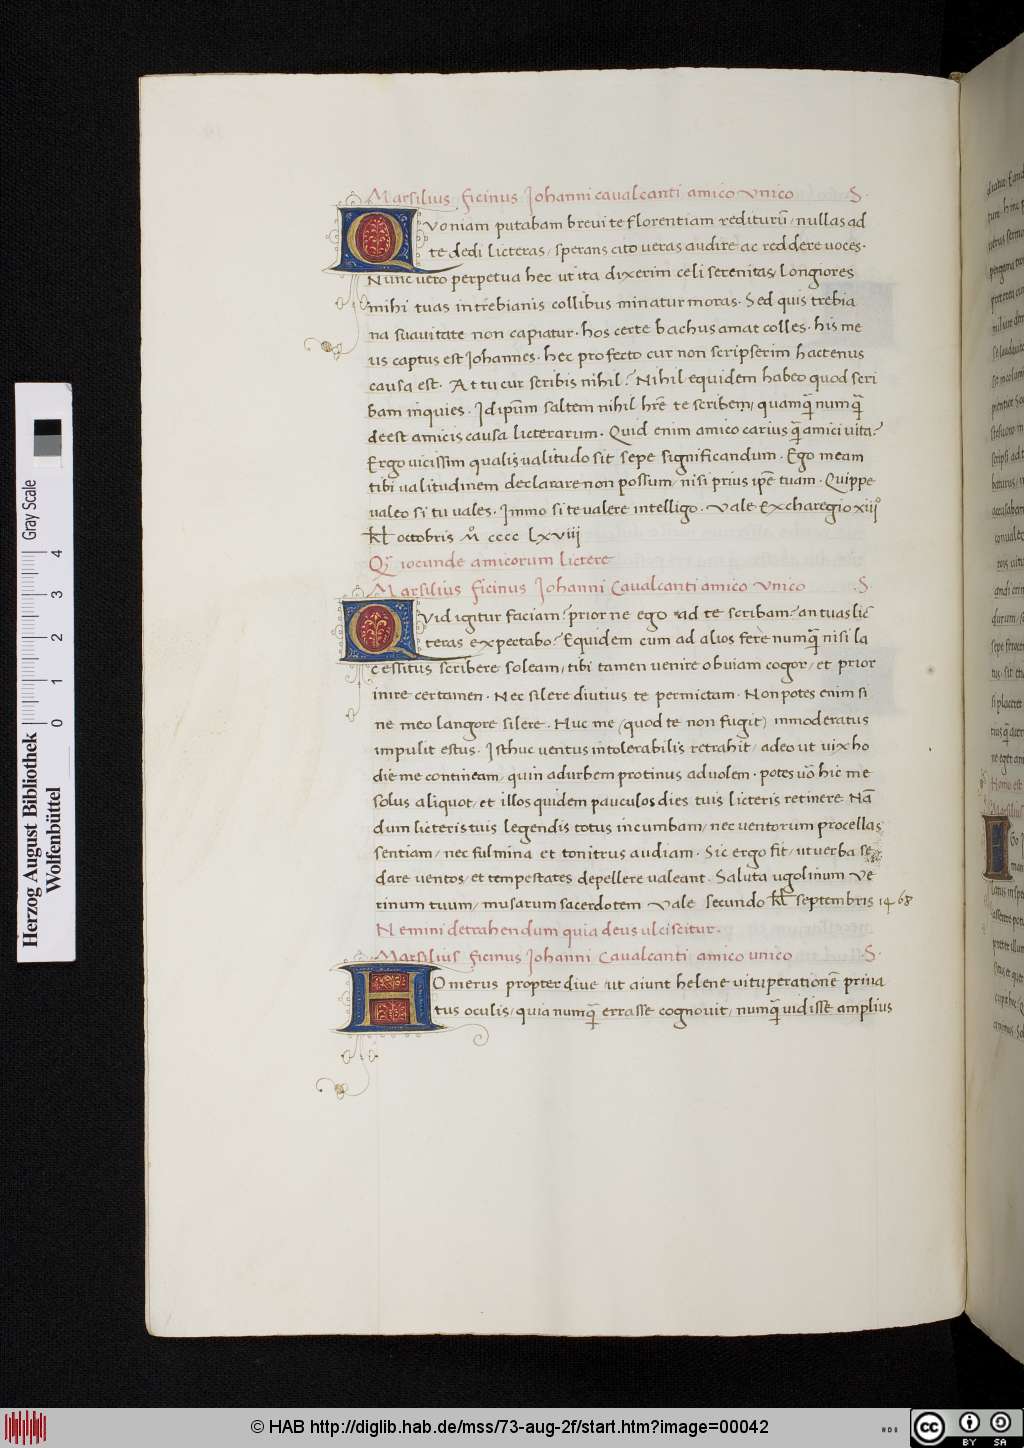 Marsilius ficinus Johanni cavalcanti amico vnico S.
QVoniam putabam brevi te florentiam rediturū / nullas ad
te dedi licteras / sperans cito veras audire ac reddere voces.
Nunc vero perpetua hec ut ita dixerim celi serenitas / Longiores
mihi tuas in trebianis collibus minatur moras. Sed quis trebia
na suavitate non capiatur. hos certe bachus amat colles. his me
us captus est Johannes. hec profecto cur non scripserim hactenus
causa est. At tu cur scribis nihil? Nihil equidem habeo quod scri
bam inquies. Idipsum saltem nihil hr̄e te scribem / quamqᷓ numqᷓ
deest amicis causa licterarum. Quid enim amico carius qᷓ amici vita?
Ergo vicissim qualis valitudo sit sepe significandum. Ego meam
tibi valitudinem declarare non possum / nisi prius ip̄e tuam. Quippe
valeo si tu vales. Immo si te valere intelligo. Vale Ex charegio xiijº
kł octobris Mº cccc Lxviij
iocunde amicorum lictere
Marsilius ficinus Johanni Cavalcanti amico vnico S.
QVid igitur faciam? prior ne ego ad te scribam? an tuas lic̄
teras expectabo? Equidem cum ad alios fere numqᷓ nisi la
cessitus scribere soleam / tibi tamen venire obviam cogor / et prior
inire certamen. Nec silere diutius te permictam. Non potes enim si
ne meo langore silere. Huc me (quod te non fugit) inmoderatus
impulit estus. Isthuc ventus intolerabilis retrahit / adeo ut vix ho
die me contineam / quin ad urbem protinus advolem. potes vō hic me
solus aliquot / et illos quidem pauculos dies tuis licteris retinere Nā
dum licteris tuis legendis totus incumbam / nec ventorum procellas
sentiam / nec fulmina et tonitrus audiam. Sic ergo fit / ut verba se
dare ventos / et tempestates depellere valeant. Saluta ugolinum Ve
rinum tuum / musarum sacerdotem Vale secundo kł septembris 1468
Nemini detrahendum quia deus ulciscitur.
Marsilius ficinus Johanni Cavalcanti amico unico S.
HOmerus propter dive ut aiunt helene vituperationē priva
tus oculis / quia numqᷓ errasse cognovit / numqᷓ vidisse amplius
Herzog August Bibliothek
Wolfenbüttel
Gray Scale
0 1 2 3 4
© HAB http://diglib.hab.de/mss/73-aug-2f/start.htm?image=00042
cc BY SA